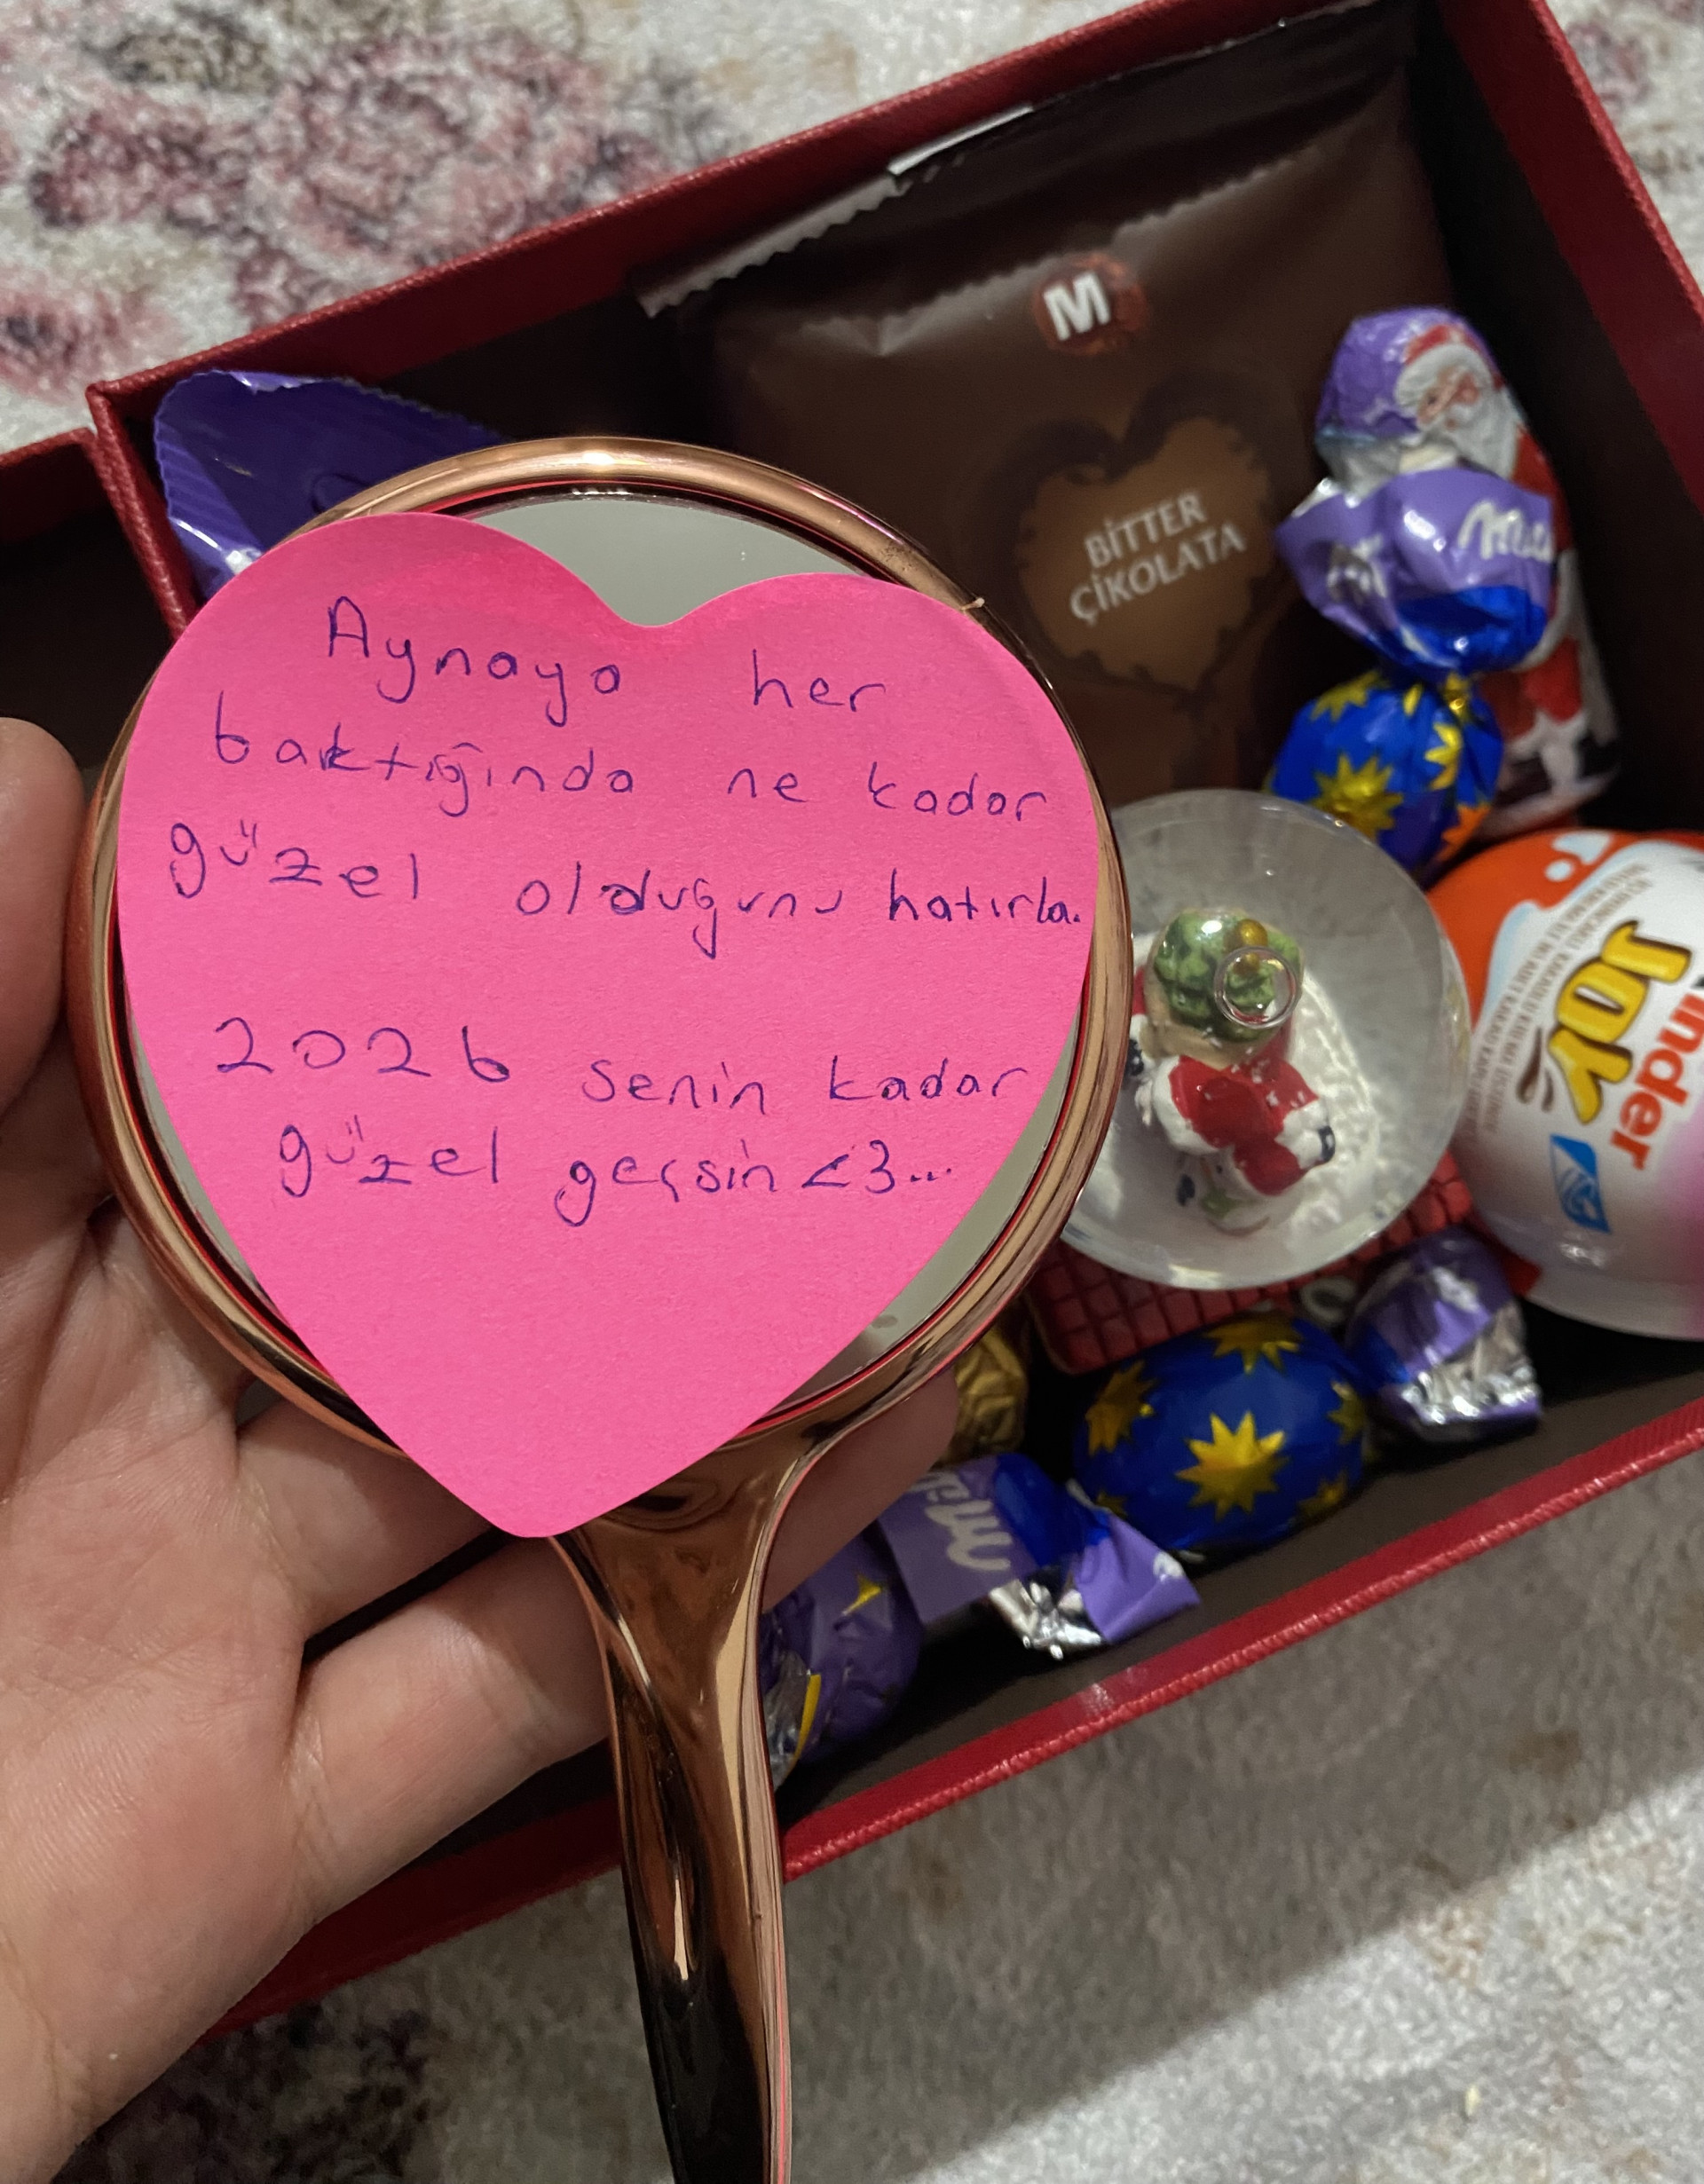 Aynaya her
baktığında ne kadar
güzel olduğunu hatırla.
2026 senin kadar
güzel geçsin <3...
M
BİTTER
ÇİKOLATA
Milka
inder
JOY